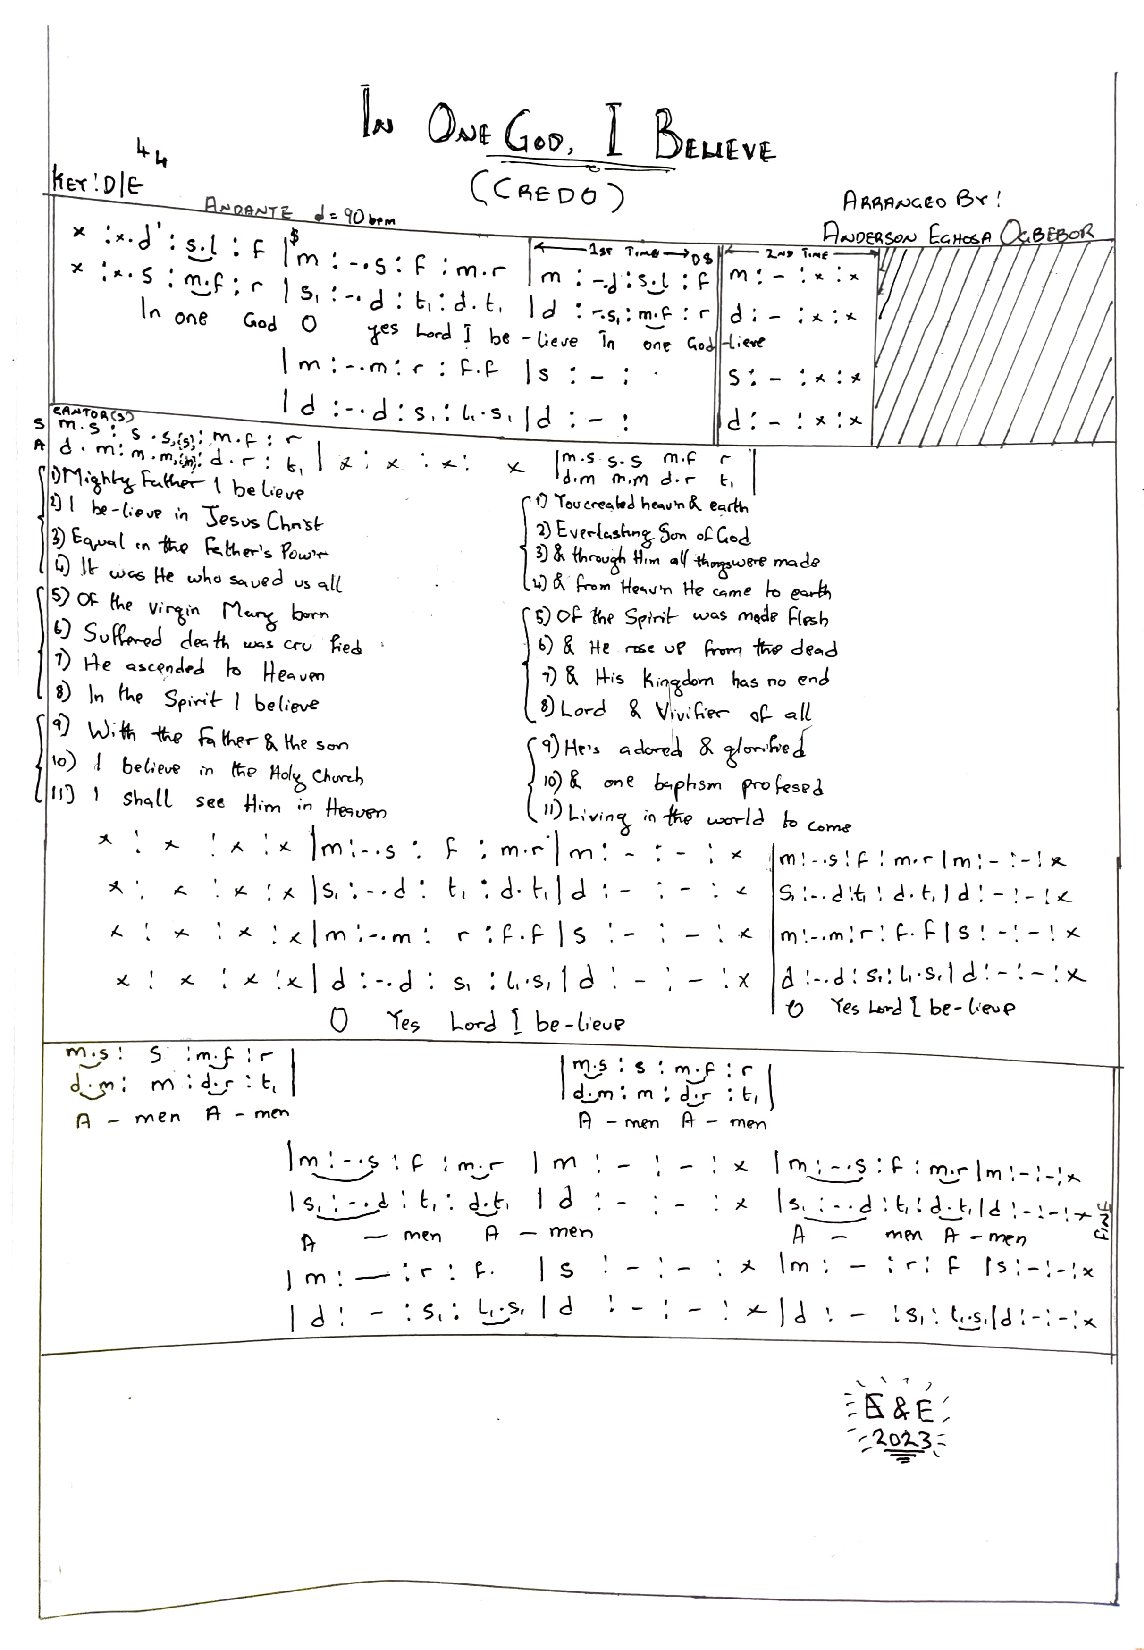 IN ONE GOD, I BELIEVE
(CREDO)
4 4
KEY: D/E
ANDANTE d = 90 bpm
ARRANGED BY:
ANDERSON EGHOSA OGBEBOR
x : x.d' : s.l : f |$ m : -.s : f : m.r | m : -.d : s.l : f | m : - : x : x
1ST TIME D$ 2ND TIME
x : x.s : m.f : r | s₁ : -.d : t₁ : d.t₁ | d : -.s₁ : m.f : r | d : - : x : x
In one God O yes Lord I be-lieve In one God -lieve
| m : -.m : r : f.f | s : - : | s : - : x : x
| d : -.d : s₁ : l₁.s₁ | d : - : | d : - : x : x
CANTOR(S)
S m.s : s.s,(s) : m.f : r | m.s s.s m.f r |
A d.m : m.m,(m) : d.r : t₁ | x : x : x : x | d.m m.m d.r t₁ |
1) Mighty Father I believe
2) I be-lieve in Jesus Christ
3) Equal in the Father's Power
4) It was He who saved us all
5) Of the virgin Mary born
6) Suffered death was cru fied
7) He ascended to Heaven
8) In the Spirit I believe
9) With the Father & the son
10) I believe in the Holy Church
11) I shall see Him in Heaven
1) You created heav'n & earth
2) Everlasting Son of God
3) & through Him all things were made
4) & from Heav'n He came to earth
5) Of the Spirit was made flesh
6) & He rose up from the dead
7) & His Kingdom has no end
8) Lord & Vivifier of all
9) He's adored & glorified
10) & one baptism profesed
11) Living in the world to come
x : x : x : x | m : -.s : f : m.r | m : - : - : x | m : -.s : f : m.r | m : - : - : x
x : x : x : x | s₁ : -.d : t₁ : d.t₁ | d : - : - : x | s₁ : -.d : t₁ : d.t₁ | d : - : - : x
x : x : x : x | m : -.m : r : f.f | s : - : - : x | m : -.m : r : f.f | s : - : - : x
x : x : x : x | d : -.d : s₁ : l₁.s₁ | d : - : - : x | d : -.d : s₁ : l₁.s₁ | d : - : - : x
O Yes Lord I be-lieve O Yes Lord I be-lieve
m.s : s : m.f : r | | m.s : s : m.f : r |
d.m : m : d.r : t₁ | | d.m : m : d.r : t₁ |
A - men A - men A - men A - men
| m : -.s : f : m.r | m : - : - : x | m : -.s : f : m.r | m : - : - : x
| s₁ : -.d : t₁ : d.t₁ | d : - : - : x | s₁ : -.d : t₁ : d.t₁ | d : - : - : x
FINE
A - men A - men A - men A - men
| m : - : r : f. | s : - : - : x | m : - : r : f | s : - : - : x
| d : - : s₁ : l₁.s₁ | d : - : - : x | d : - : s₁ : l₁.s₁ | d : - : - : x
E & E
2023